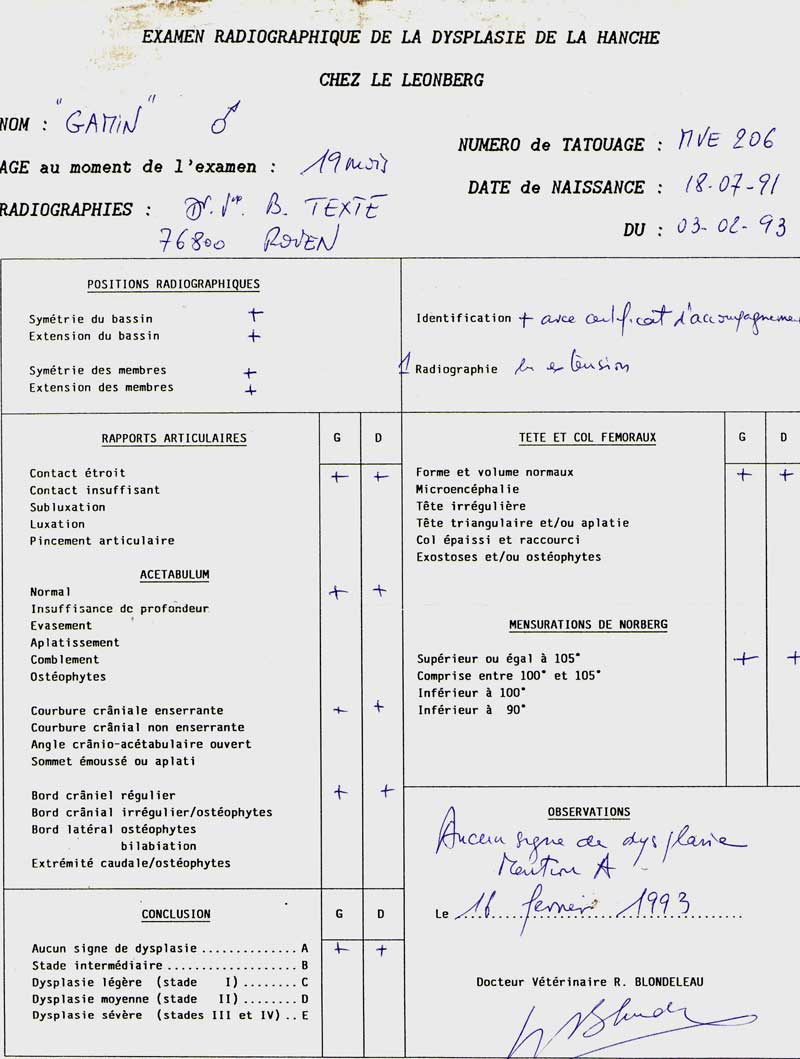 EXAMEN RADIOGRAPHIQUE DE LA DYSPLASIE DE LA HANCHE
CHEZ LE LEONBERG
NOM : "GAMIN" ♂
NUMERO de TATOUAGE : MVE 206
AGE au moment de l'examen : 19 mois
DATE de NAISSANCE : 18-07-91
RADIOGRAPHIES : Dr. B. TEXTE
76800 ROUEN
DU : 03-02-93
POSITIONS RADIOGRAPHIQUES
Symétrie du bassin +
Extension du bassin +
Symétrie des membres +
Extension des membres +
Identification + avec certificat d'accompagnemen
1 Radiographie en extension
RAPPORTS ARTICULAIRES G D
Contact étroit + +
Contact insuffisant
Subluxation
Luxation
Pincement articulaire
ACETABULUM
Normal + +
Insuffisance de profondeur
Evasement
Aplatissement
Comblement
Ostéophytes
Courbure crâniale enserrante + +
Courbure crânial non enserrante
Angle crânio-acétabulaire ouvert
Sommet émoussé ou aplati
Bord crâniel régulier + +
Bord crânial irrégulier/ostéophytes
Bord latéral ostéophytes
bilabiation
Extrémité caudale/ostéophytes
TETE ET COL FEMORAUX G D
Forme et volume normaux + +
Microencéphalie
Tête irrégulière
Tête triangulaire et/ou aplatie
Col épaissi et raccourci
Exostoses et/ou ostéophytes
MENSURATIONS DE NORBERG
Supérieur ou égal à 105° + +
Comprise entre 100° et 105°
Inférieur à 100°
Inférieur à 90°
CONCLUSION G D
Aucun signe de dysplasie .............. A + +
Stade intermédiaire ................... B
Dysplasie légère (stade I) ........ C
Dysplasie moyenne (stade II) ........ D
Dysplasie sévère (stades III et IV) .. E
OBSERVATIONS
Aucun signe de dysplasie
Mention A
Le 16 fevrier 1993
Docteur Vétérinaire R. BLONDELEAU